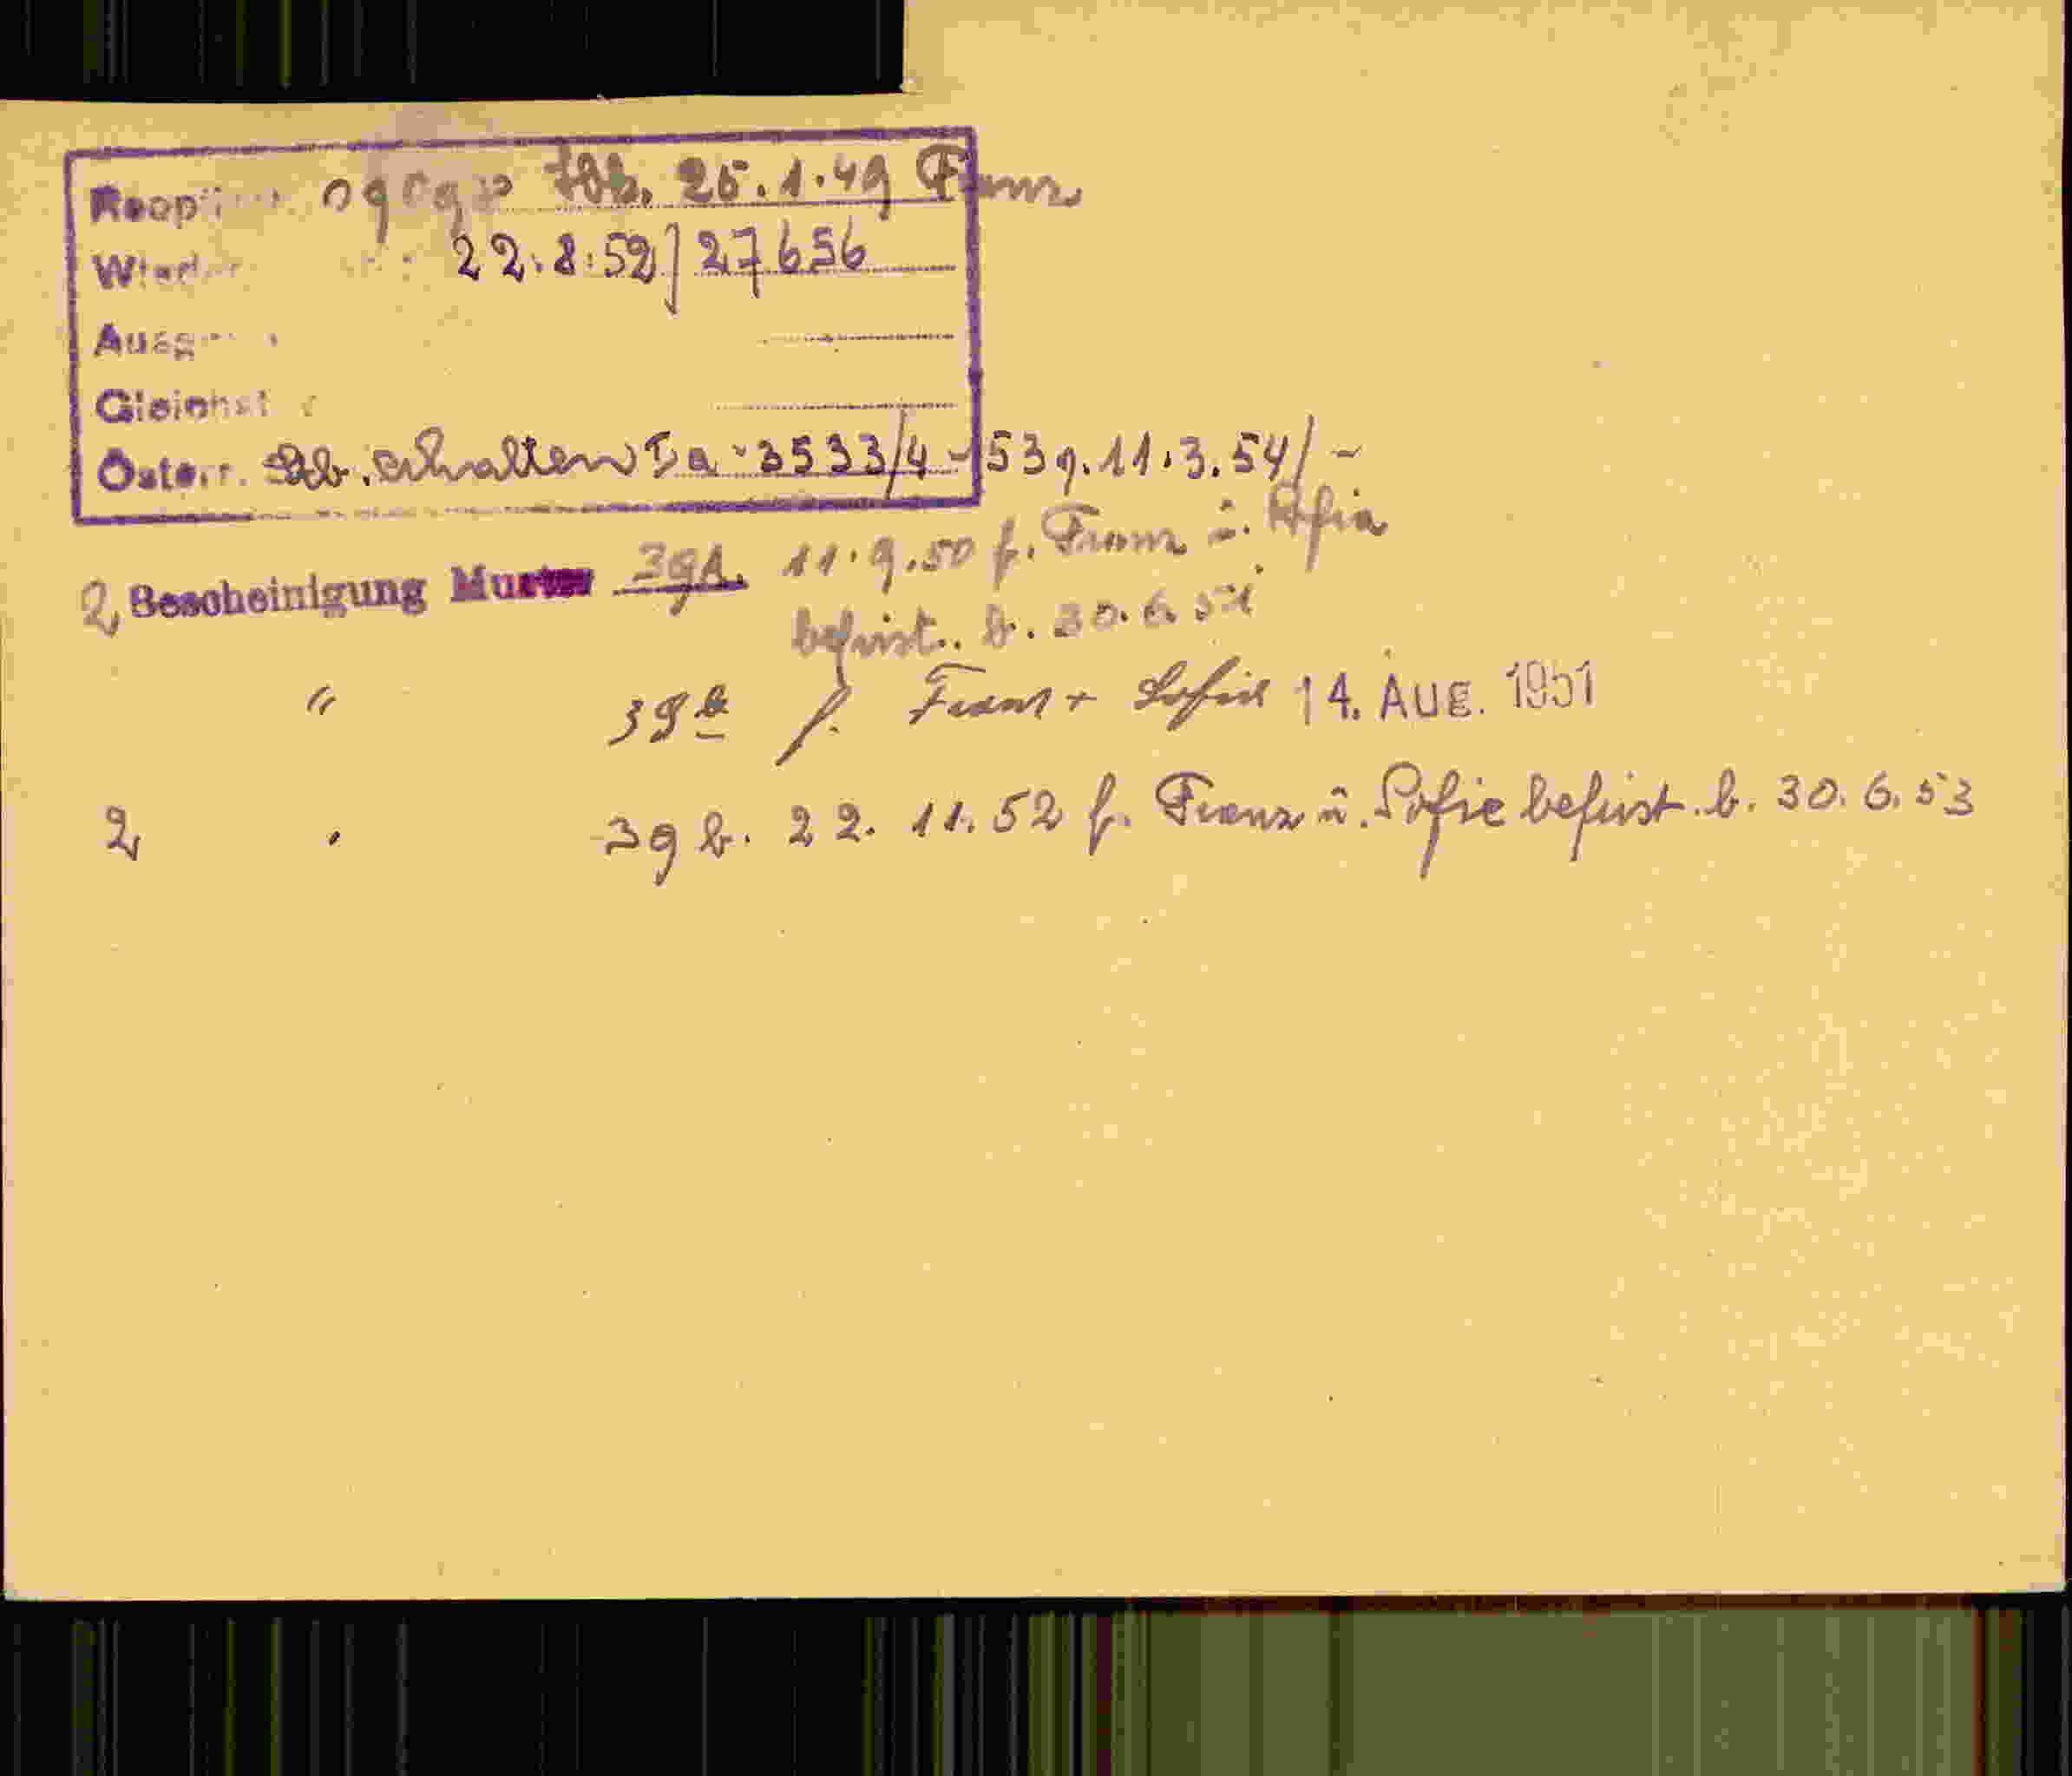 25.1.49 Franz
22.8.52 / 27656
Österr. Stb. erhalten Ia-3533/4-53 v. 11.3.54/-
2 Bescheinigung Muster 39A. 11.9.50 f. Franz u. Sofia
befrist. b. 30.6.51
" 39a f. Franz + Sofie 14. AUG. 1951
2 " 39 b. 22. 11. 52 f. Franz u. Sofie befrist. b. 30. 6. 53